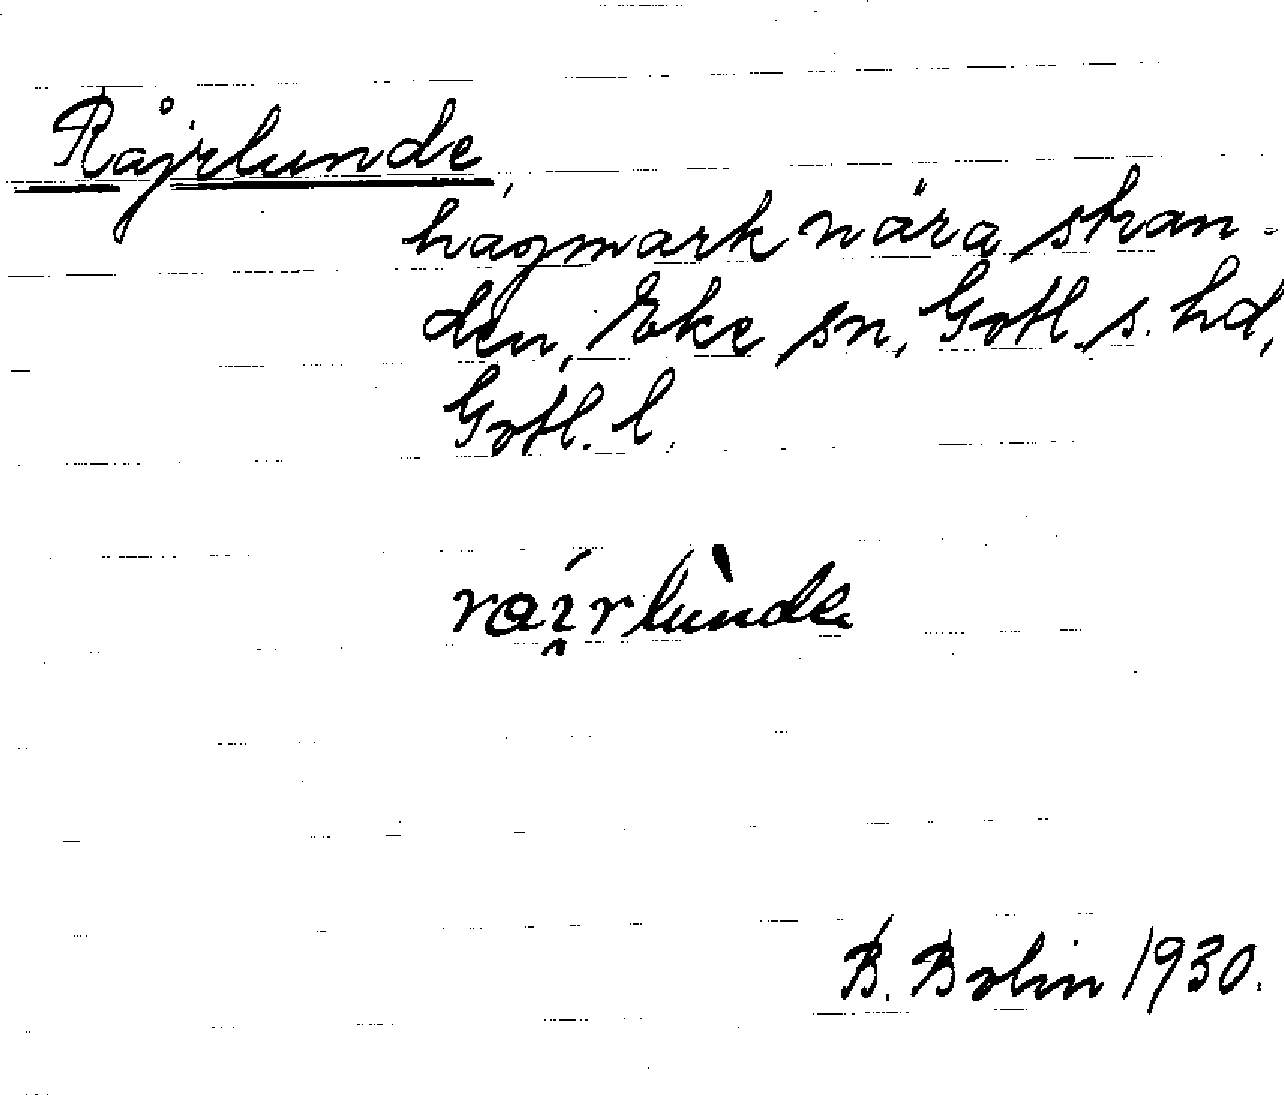 Råjrlunde,
hagmark nära stran-
den, Eke sn, Gotl. s. hd,
Gotl. l.
B. Bolin 1930.